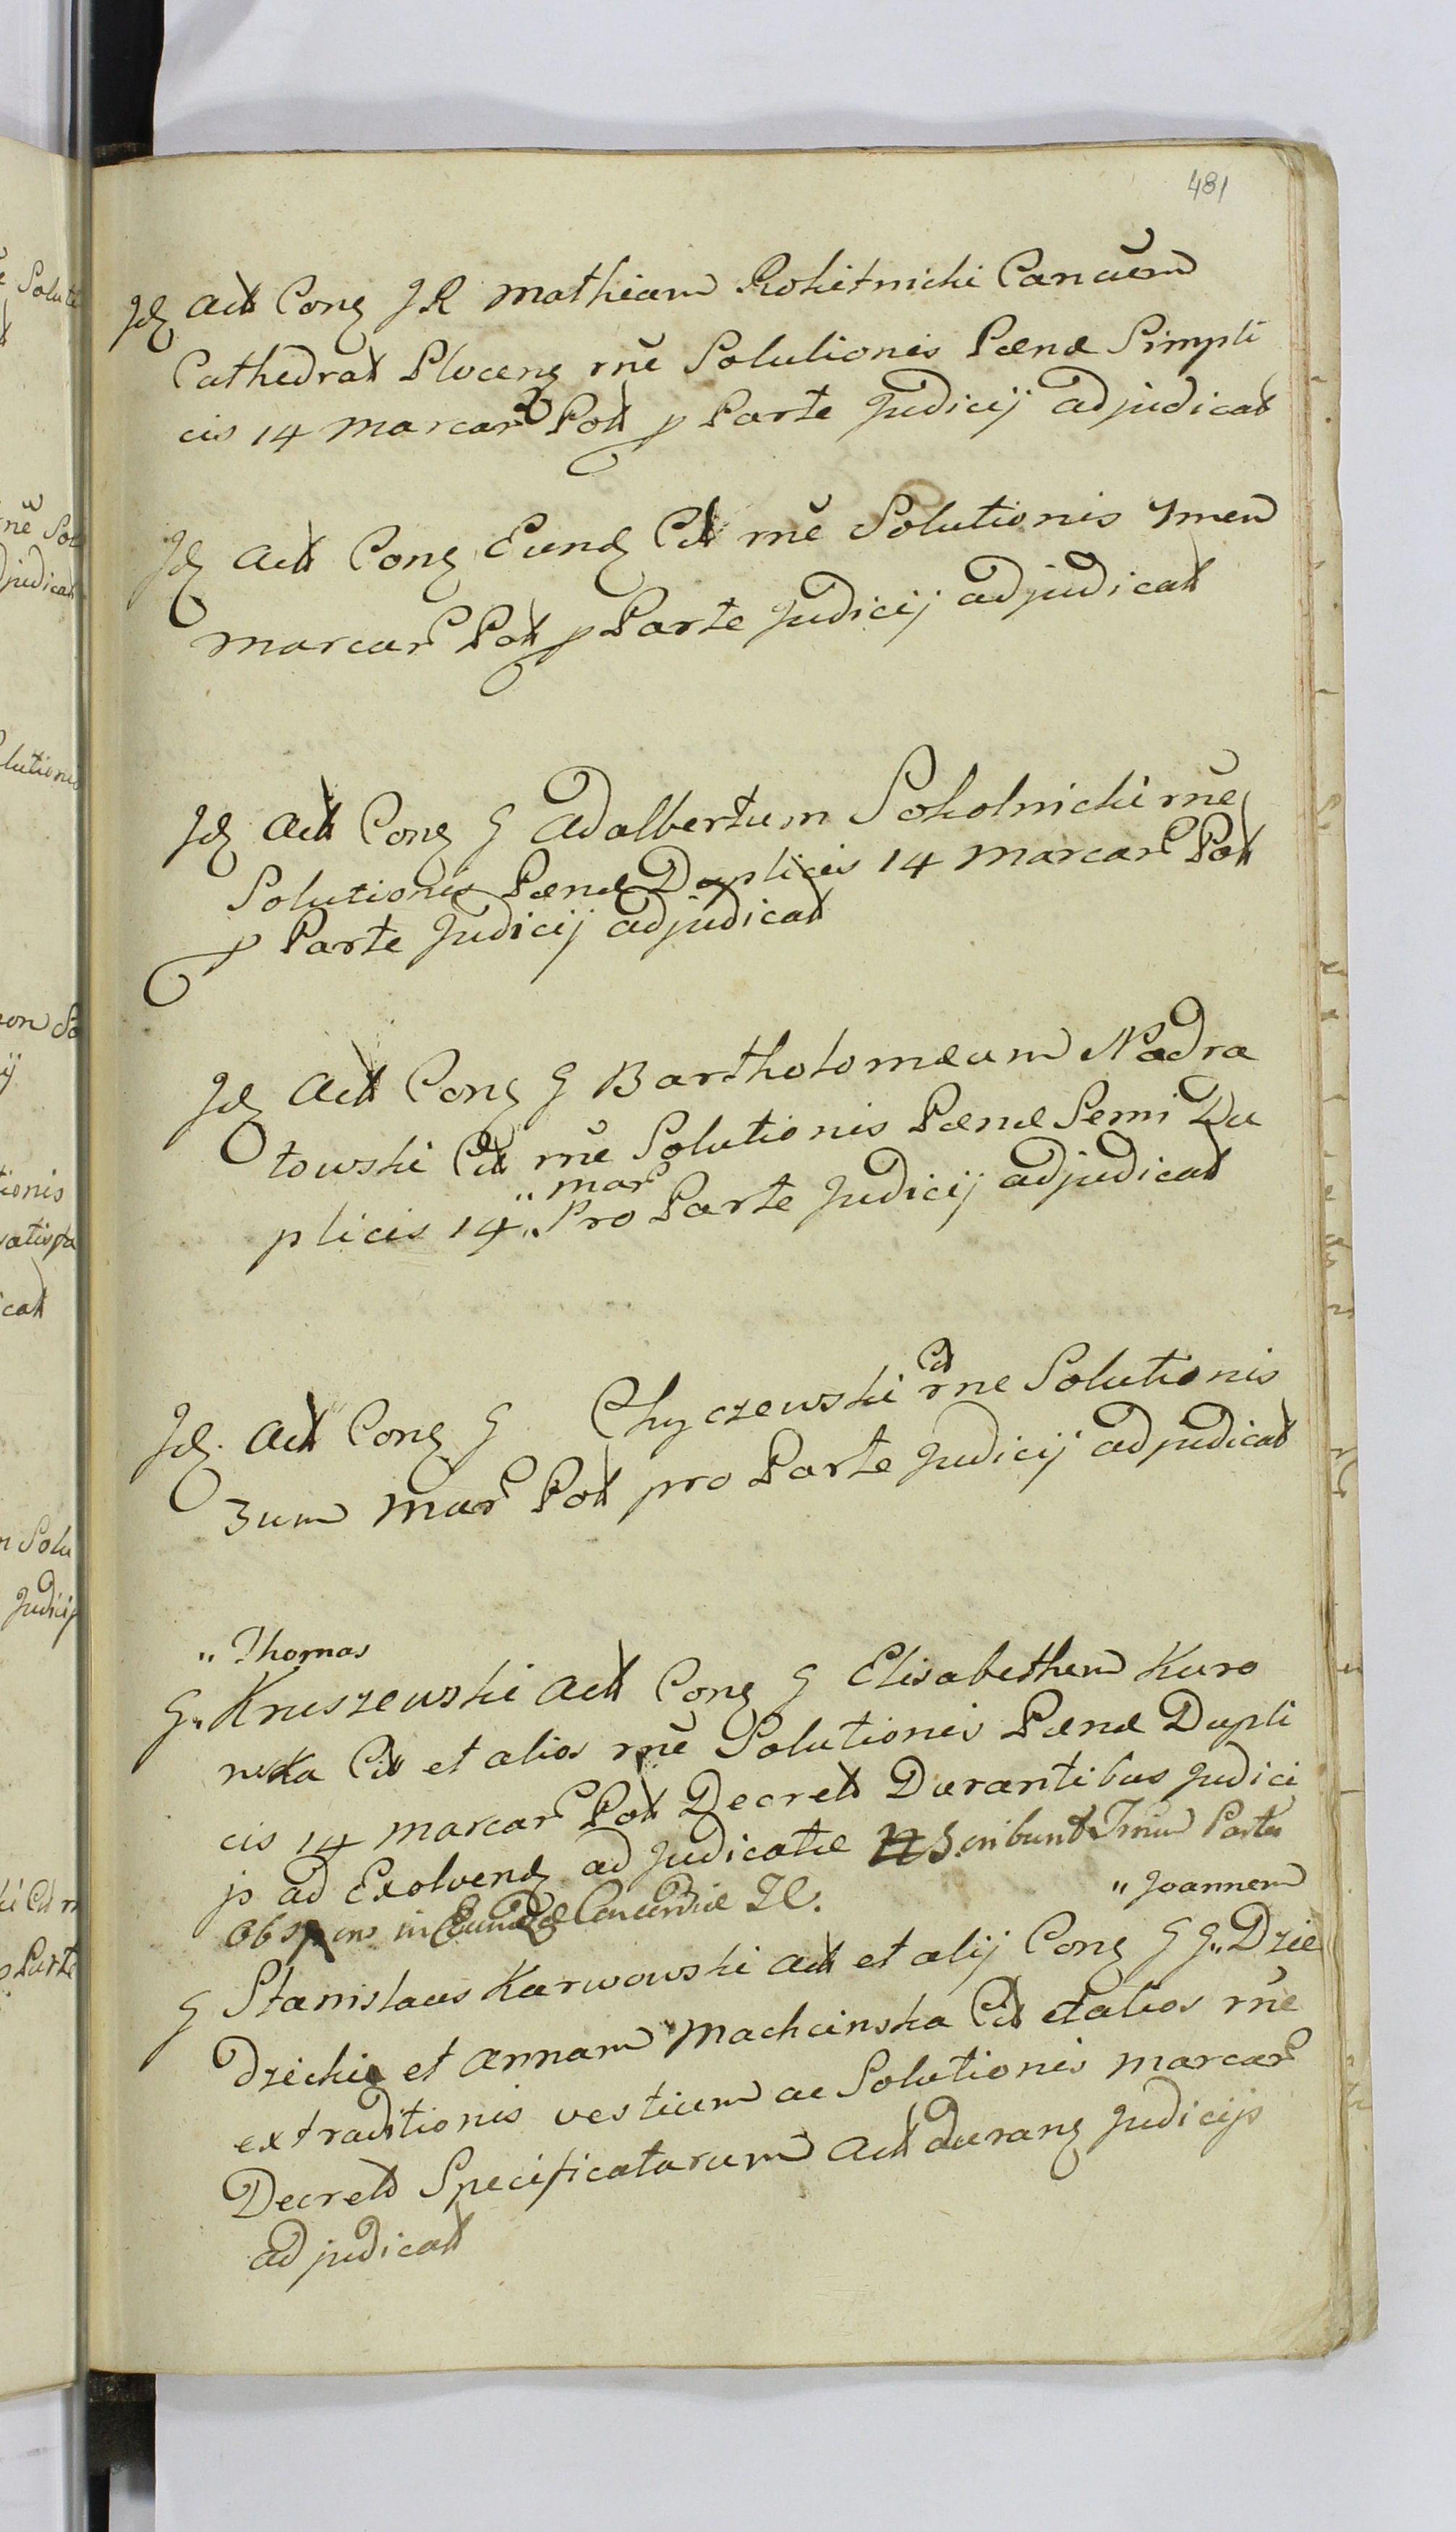 481
Jd Act Cong J R Mathiam Rokitnicki Cancum
Cathedral Ploceng rne Solutionis Pænæ Simpli
cis 14 Marcar Pol p Parte Judicij adjudicat
Jd Act Cong Eund Cit rne Solutionis 7men
Marcar Pol p Parte Judicij adjudicat
Jd Act Cong G Adalbertum Sokolnicki rne
Solutionis Pænæ Duplicis 14 Marcar Pol
p Parte Judicij adjudicat
Jd Act Cong G Bartholomæum Nadra
towski Cit rne Solutionis Pænæ Semi Du
" mar
plicis 14 " Pro Parte Judicij adjudicat
Cit
Jd. Act Cong G Chyczewski rne Solutionis
3um Mar Pol pro Parte Judicij adjudicat
" Thomas
G " Kruszewski Act Cong G Elisabetham Kuro
wska Cit et alios rne Solutionis Pænæ Dupli
cis 14 Marcar Pol Decret Durantibus Judici
js ad Exolvend adjudicatæ Scribunt Partes
in Concordiæ
" Joannem
G Stanislaus Karwowski Act et alij Cong G G " Dzie
dzicki et Annam Machcinska Cit et alios rne
extraditionis vestium ac Solutionis Marcar
Decret Specificatarum Act durang Judicijs
adjudicat